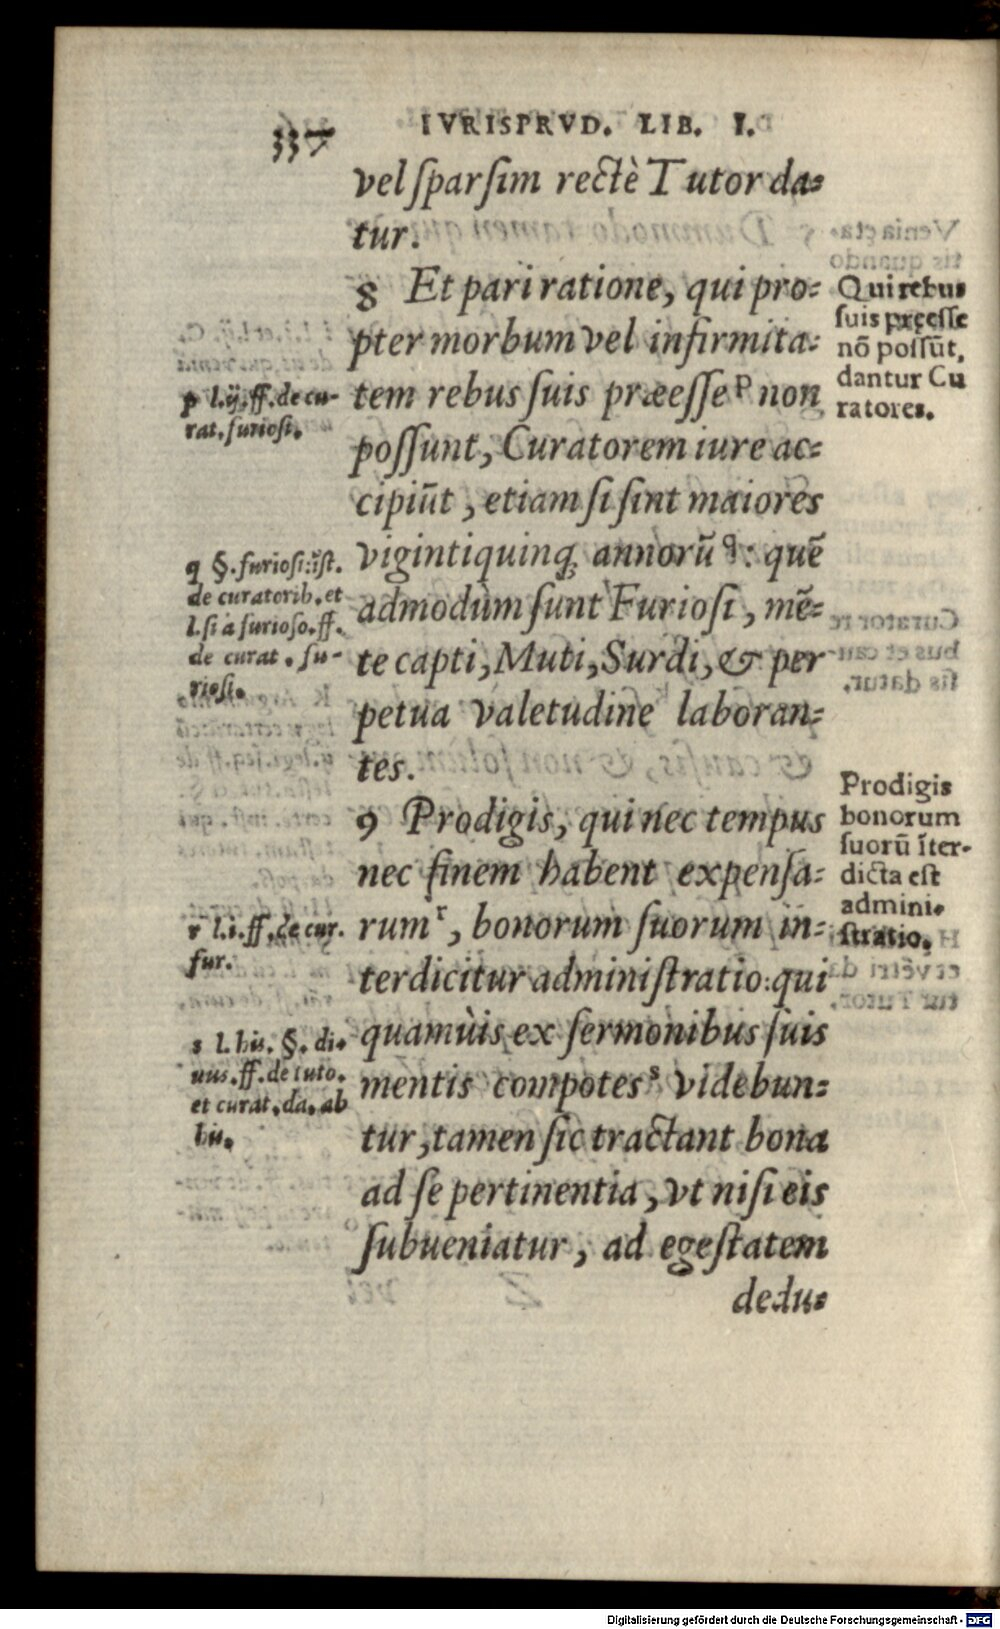 337
IVRISPRVD. LIB. I.
vel ſparſim rectè Tutor da=
tur.
8 Et pari ratione, qui pro=
pter morbum vel infirmita=
tem rebus ſuis præeſſe p non
poſſunt, Curatorem iure ac=
cipiūt, etiam ſi ſint maiores
vigintiquinq; annorū q: quē
admodùm ſunt Furioſi, mē=
te capti, Muti, Surdi, & per
petua valetudine laboran=
tes.
9 Prodigis, qui nec tempus
nec finem habent expenſa=
rum r, bonorum ſuorum in=
terdicitur adminiſtratio: qui
quamùis ex ſermonibus ſuis
mentis compotes s videbun=
tur, tamen ſic tractant bona
ad ſe pertinentia, vt niſi eis
ſubueniatur, ad egeſtatem
dedu=
p l.ij.ff.de cu-
rat.furioſi.
q §.furioſi:ĩſt.
de curatorib.et
l.ſi a furioſo.ff.
de curat. fu-
rioſi.
r l.i.ff.de cur.
fur.
s l. his. §. di-
uus.ff.de tuto.
et curat.da.ab
his.
Qui rebus
ſuis pręeſſe
nō poſſūt,
dantur Cu
ratores.
Prodigis
bonorum
ſuorū ĩter-
dicta eſt
admini-
ſtratio.
Digitalisierung gefördert durch die Deutsche Forschungsgemeinschaft - DFG